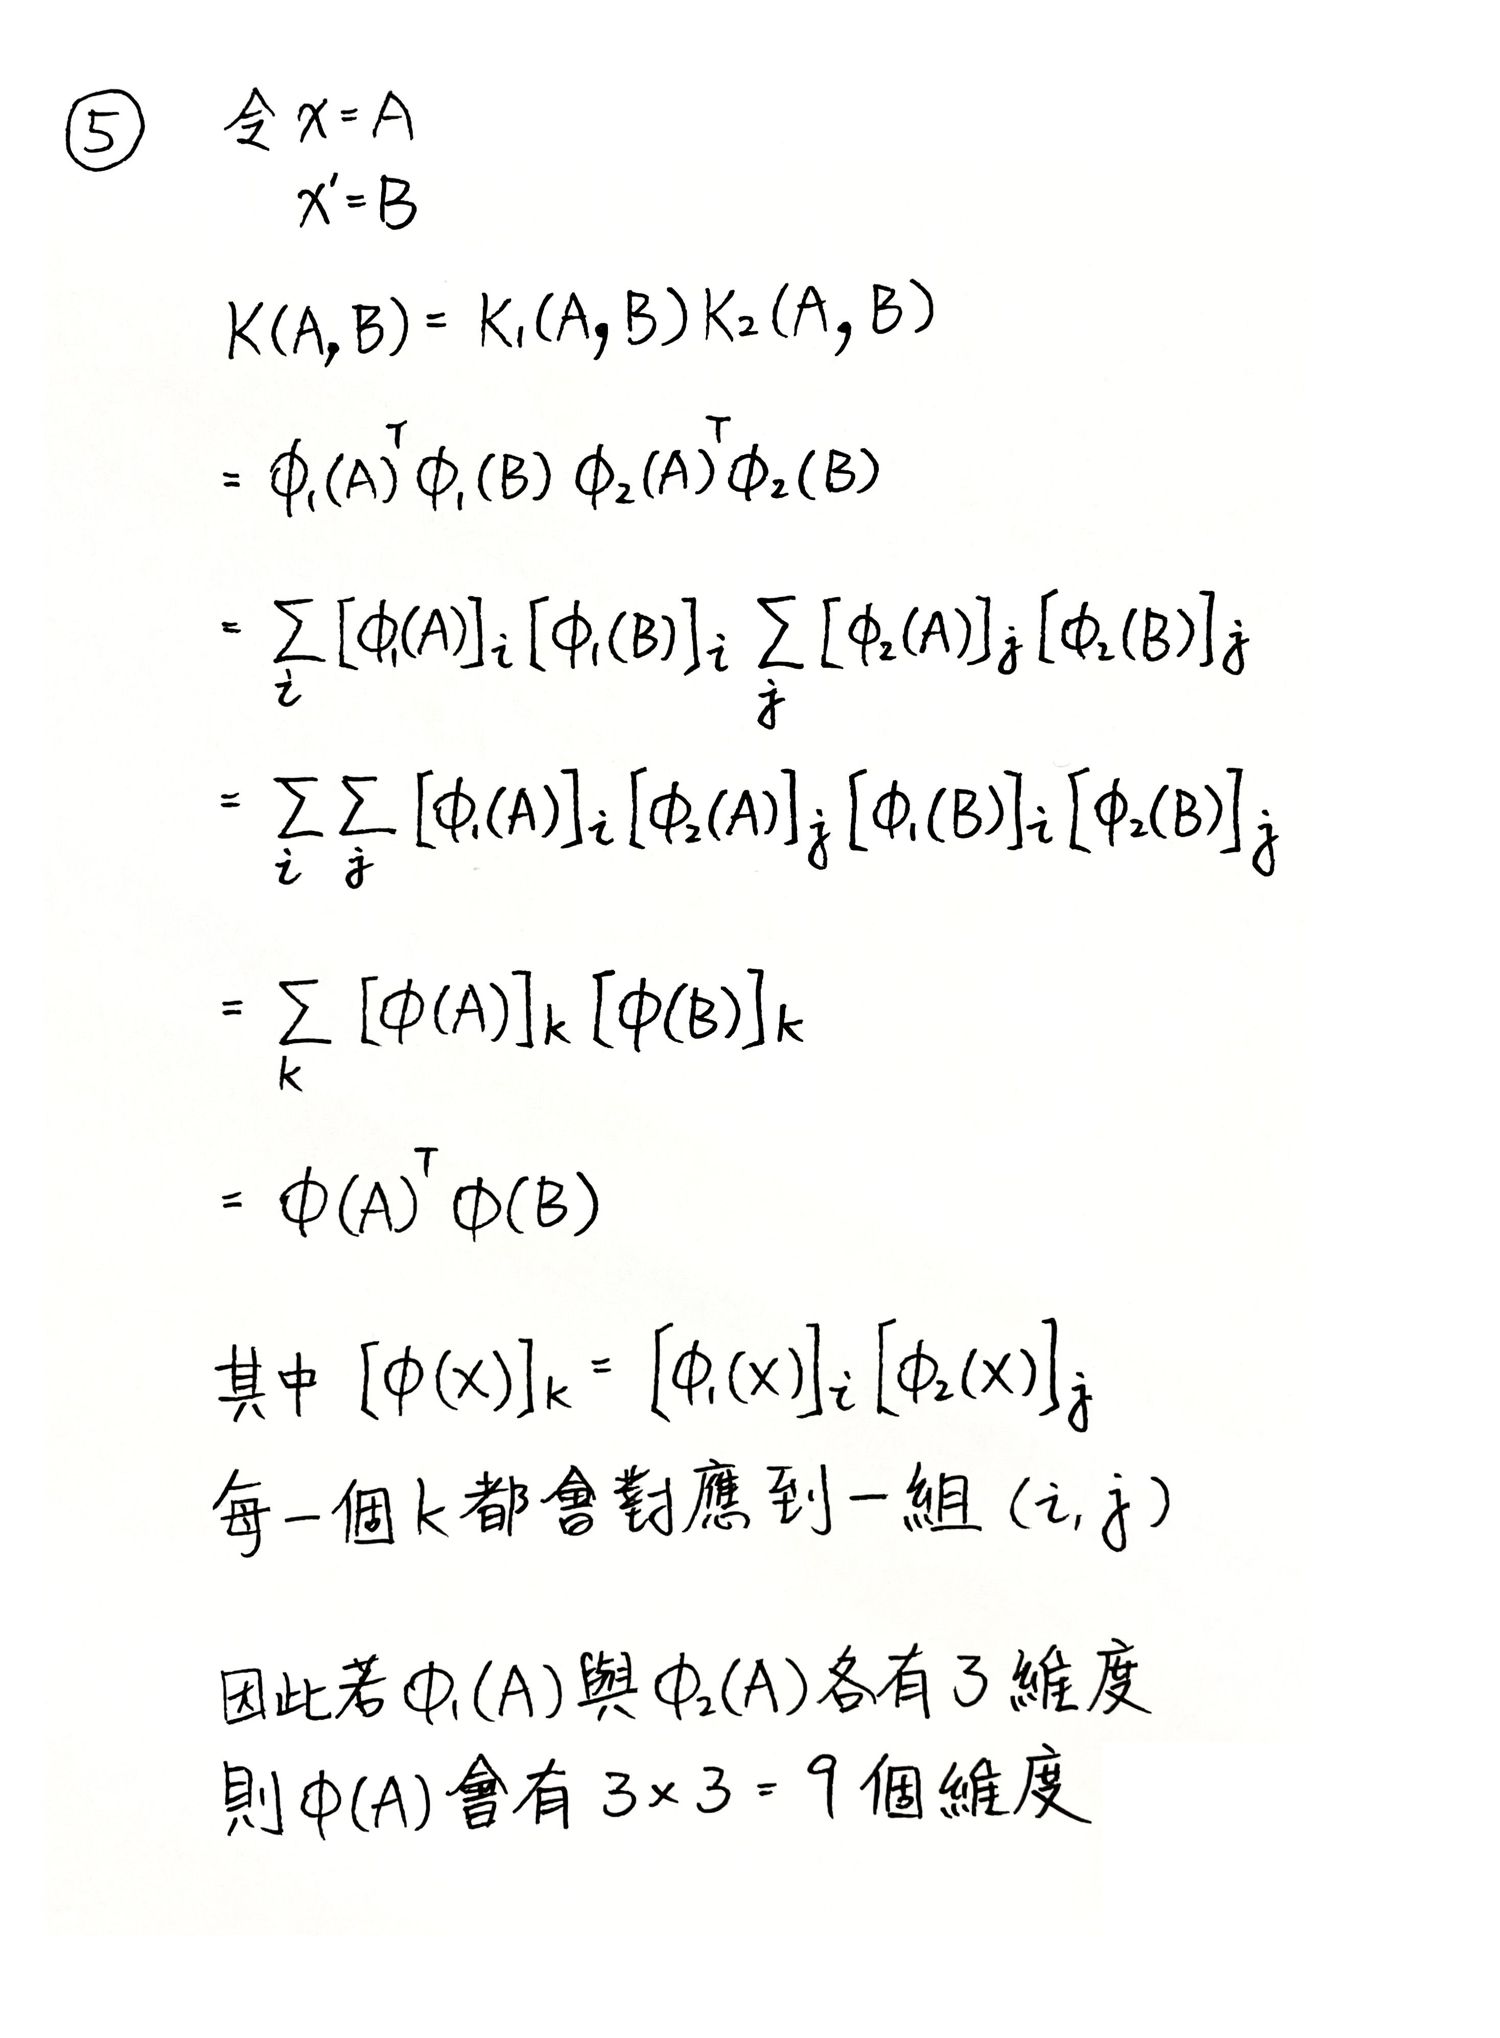 ⑤ 令 x = A
x' = B
K(A,B) = K₁(A,B) K₂(A,B)
= ϕ₁(A)ᵀ ϕ₁(B) ϕ₂(A)ᵀ ϕ₂(B)
= Σᵢ [ϕ₁(A)]ᵢ [ϕ₁(B)]ᵢ Σⱼ [ϕ₂(A)]ⱼ [ϕ₂(B)]ⱼ
= Σᵢ Σⱼ [ϕ₁(A)]ᵢ [ϕ₂(A)]ⱼ [ϕ₁(B)]ᵢ [ϕ₂(B)]ⱼ
= Σₖ [ϕ(A)]ₖ [ϕ(B)]ₖ
= ϕ(A)ᵀ ϕ(B)
其中 [ϕ(x)]ₖ = [ϕ₁(x)]ᵢ [ϕ₂(x)]ⱼ
每一個 k 都會對應到一組 (i, j)
因此若 ϕ₁(A) 與 ϕ₂(A) 各有 3 維度
則 ϕ(A) 會有 3 × 3 = 9 個維度